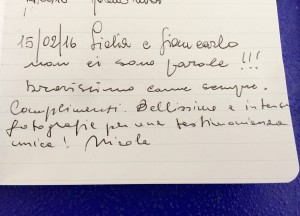 15/02/16 Giulia e Giancarlo
non ci sono parole !!!
bravissimo come sempre.
Complimenti. Bellissime e intense
fotografie per una testimonianza
unica! Nicole